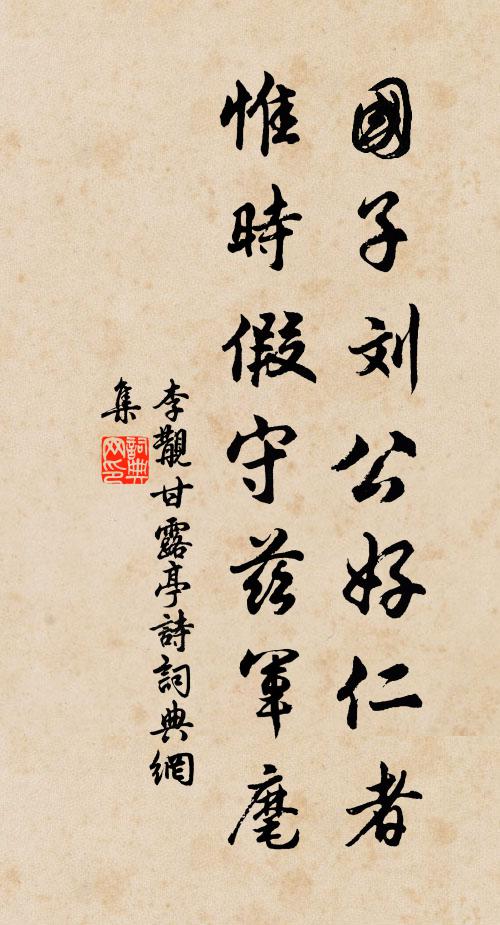 國子刘公好仁者
惟時假守兹軍麾
李觏甘露亭詩詞典網
集
詞典
网印